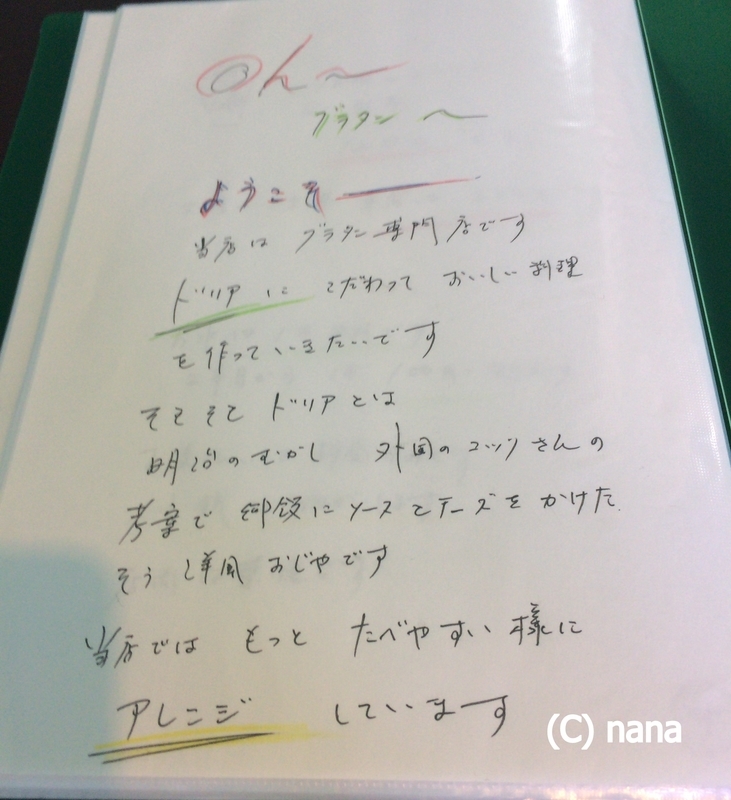 Oh～
グラタン ～
ようこそ
当店は グラタン専門店です
ドリアに こだわって おいしい料理
を作っていきたいです
そもそも ドリアとは
明治のむかし 外国のコックさんの
考案で 御飯にソースとチーズをかけた
そう 洋風 おじやです
当店では もっと たべやすい様に
アレンジ しています
(C) nana